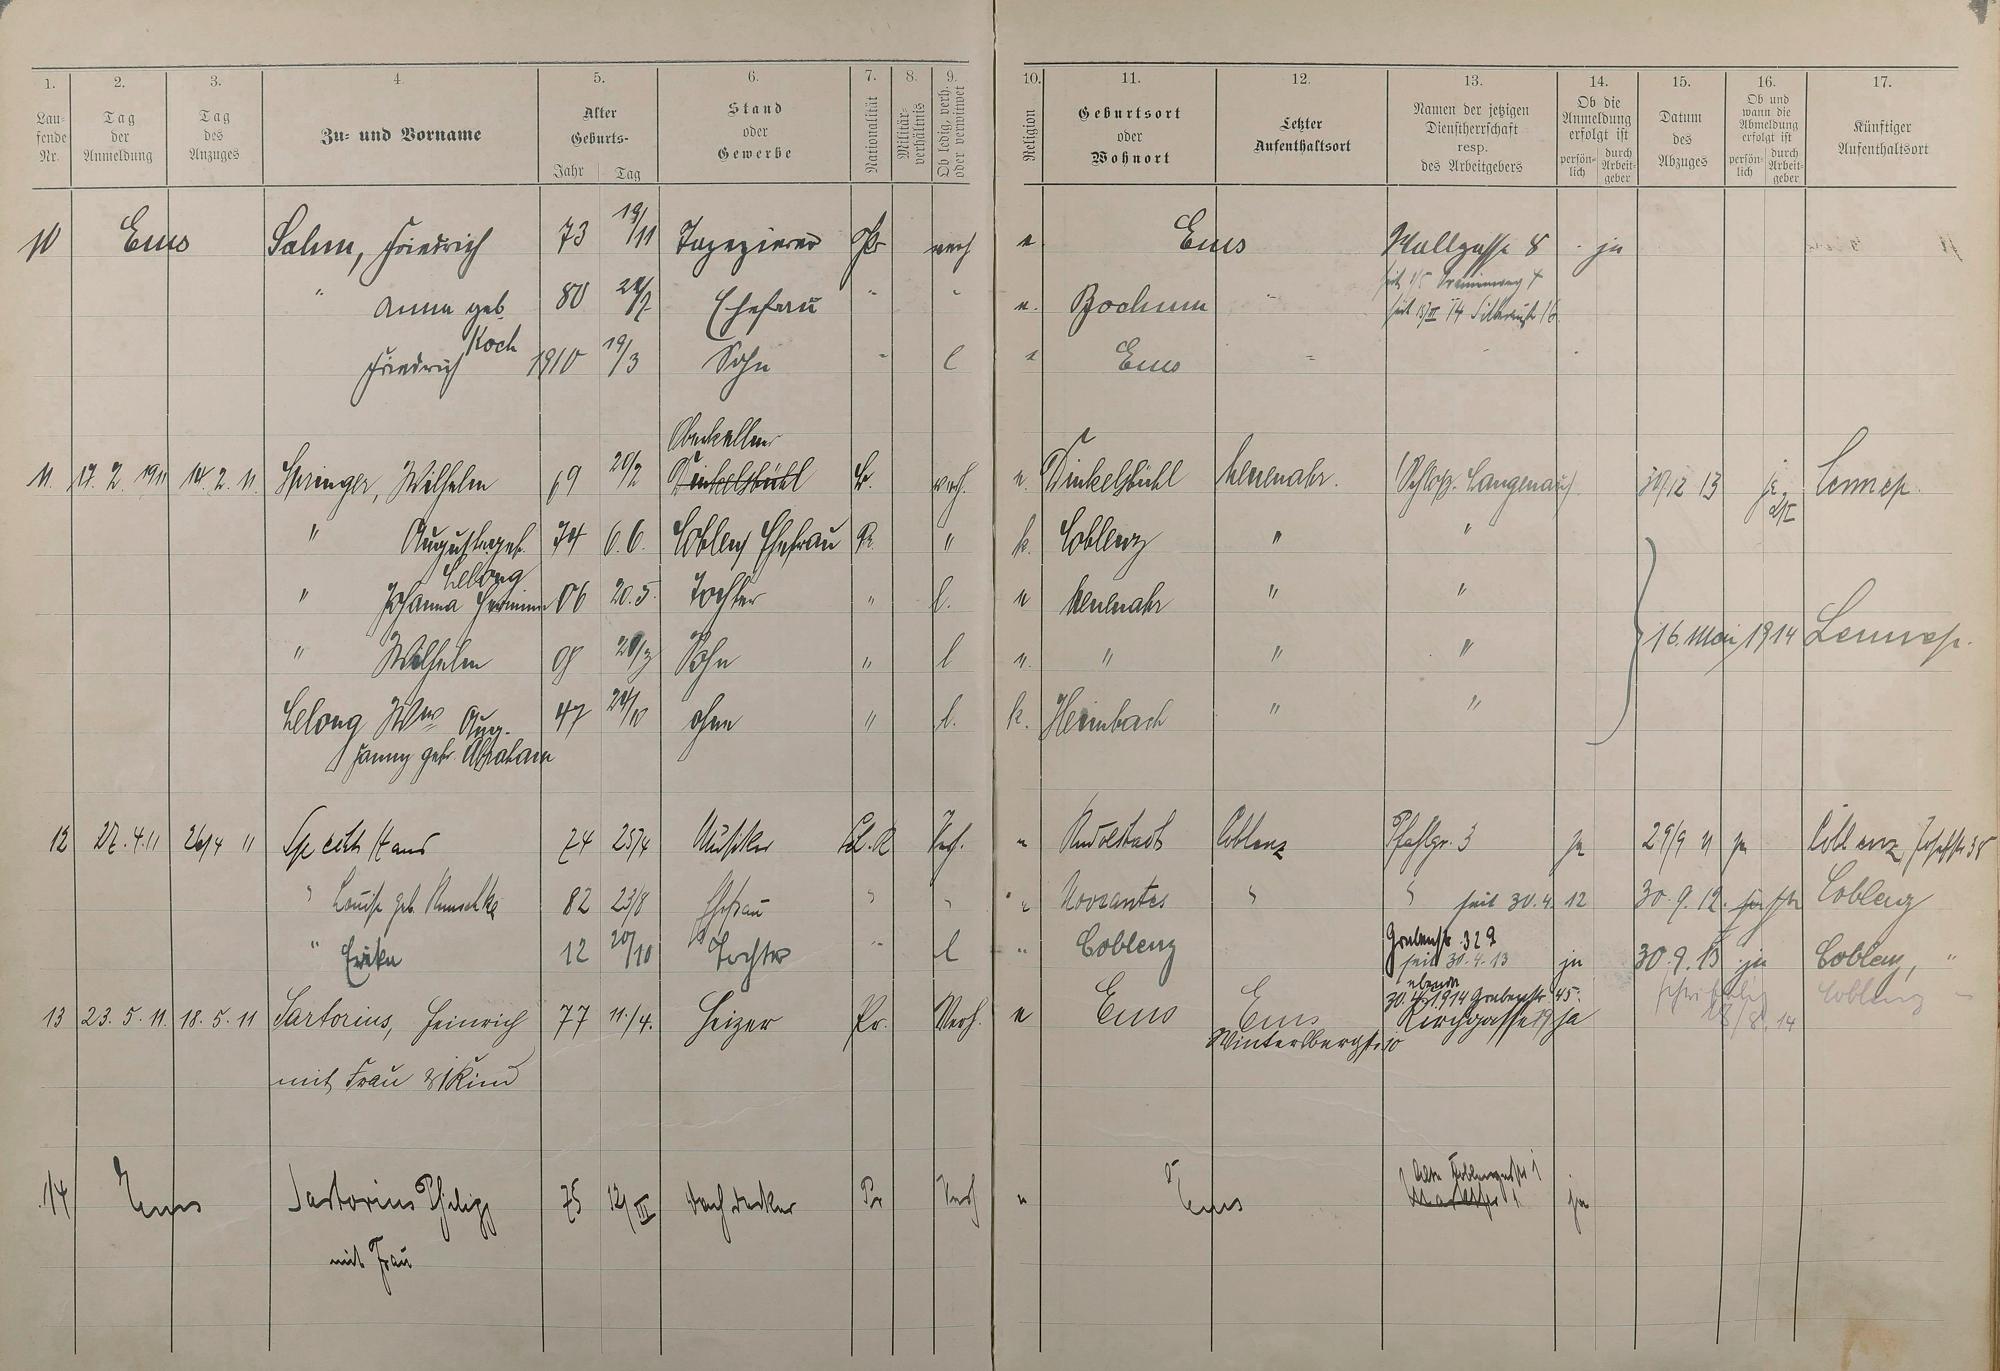 1. 2. 3. 4. 5. 6. 7. 8. 9. 10. 11. 12. 13. 14. 15. 16. 17.
Lau-fende Nr.
Tag der Anmeldung
Tag des Anzuges
Zu- und Vorname
Alter Geburts- Jahr Tag
Stand oder Gewerbe
Nationalität
Militär-verhältnis
Ob ledig, verh. oder verwitwet
Religion
Geburtsort oder Wohnort
Letzter Aufenthaltsort
Namen der jetzigen Dienstherrschaft resp. des Arbeitgebers
Ob die Anmeldung erfolgt ist persön-lich durch Arbeit-geber
Datum des Abzuges
Ob und wann die Abmeldung erfolgt ist persön-lich durch Arbeit-geber
Künftiger Aufenthaltsort
10 Ems Salm, Friedrich 73 19/11 Tapezierer Pr verh e Ems Wallgasse 8 ja
" Anna geb. 80 Ehefrau " " e. Bochum "
Koch
Friedrich 1910 19/3 Sohn " l " Ems "
Oberkellner
11. 17. 2. 1911 14. 2. 11. Springer, Wilhelm 69 20/2 Dinkelsbühl verh. e. Dinkelsbühl Neuenahr. Schloß Langenau 30/12 13 ja Lennep.
" Auguste geb. 74 6.6. Coblenz Ehefrau Pr. " k. Coblenz " "
Lelong
" Johanna Hermine 06 20.5. Tochter " l. e Neuenahr " "
" Wilhelm 08 Sohn " l e. " " " 16. Mai 1914 Lennep.
Lelong Wwe Aug. 47 24/10 ohne " l. k. Heimbach " "
Fanny geb. Abraham
12 27. 4. 11 26/4 11 Specht Hans 74 25/4 Musiker Verh. " Rudolstadt Coblenz Pfahlgr. 3 ja 29/9 11 ja Coblenz, Josefstr 38
" Louise geb. 82 23/8 Ehefrau " " " Nowawes " " seit 30. 4. 12 30. 9. 12. Coblenz
" Erika 12 20/10 Tochter " l " Coblenz Grabenstr. 32 a
seit 30. 4. 13 ja 30. 9. 13 ja Coblenz, "
30. 4. 1914 Grabenstr. 45.
13 23. 5. 11. 18. 5. 11 Sartorius, Heinrich 77 11./4. Heizer Pr. Verh. e Ems Ems Kirchgasse 19 ja 18/8. 14 Coblenz
Wintersbergstr. 10
mit Frau & 1 Kind
14 Ems Sartorius Philipp 75 12/III Dachdecker Pr Verh " Ems Alte Koblenzerstr 1 ja
mit Frau